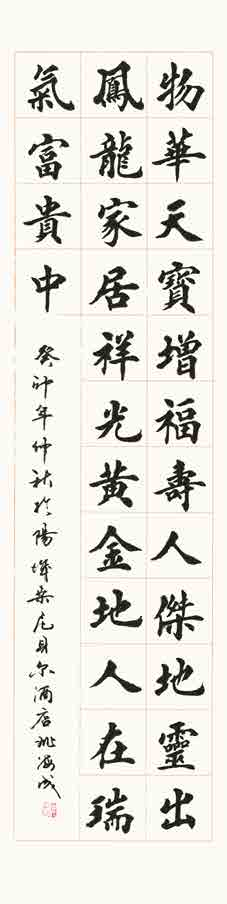 物華天寶增福壽人傑地靈出
鳳龍家居祥光黃金地人在瑞
氣富貴中
癸卯年仲秋於陽
酒店